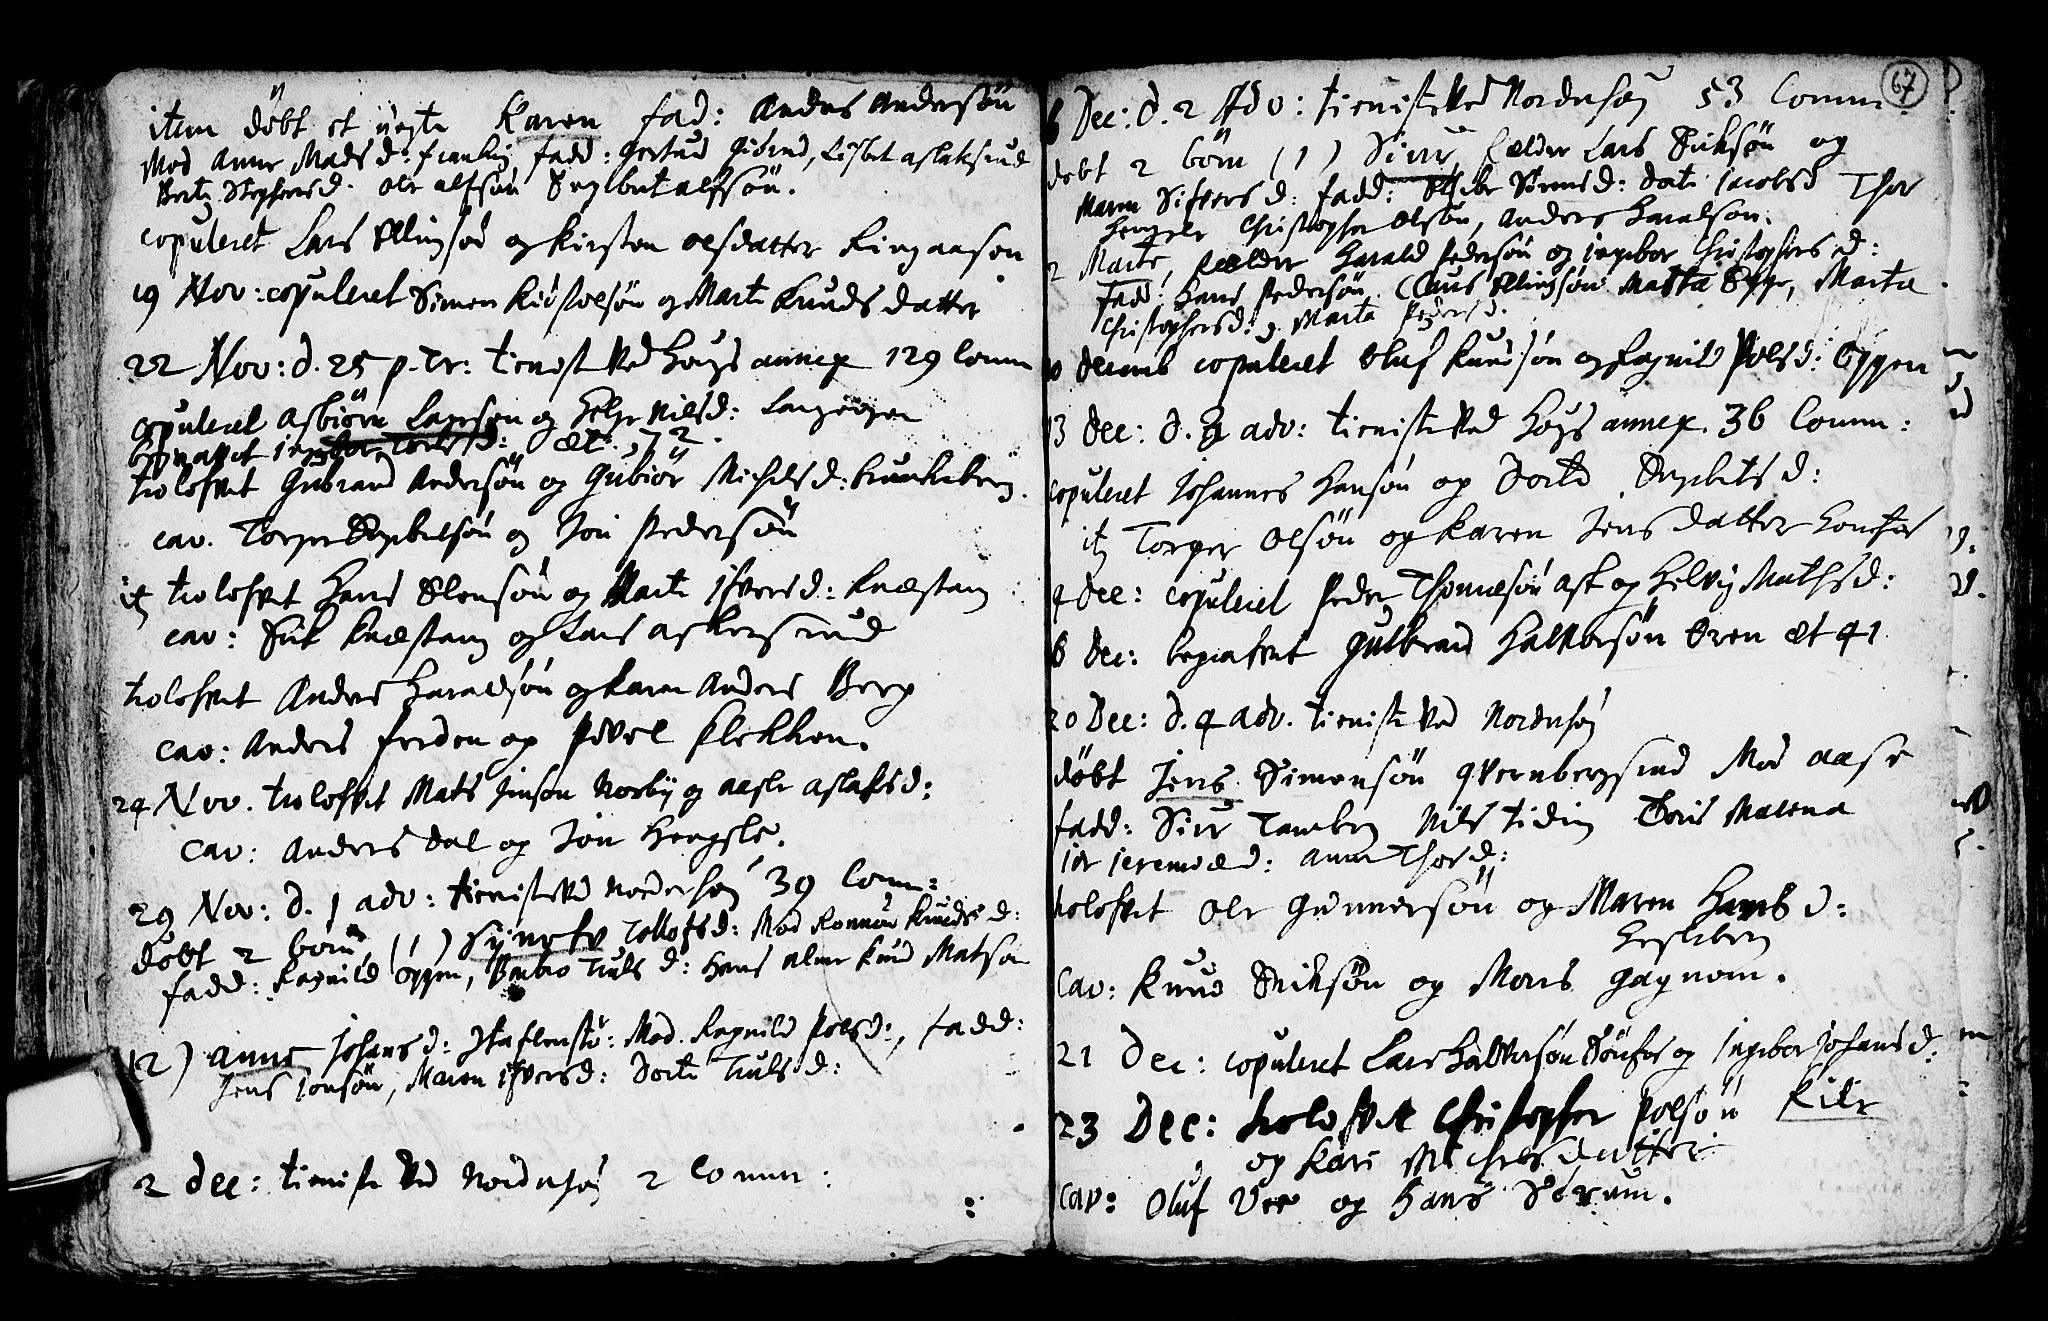 item döbt et uegte Karen fad: Anders Andersön
Mod Anne Madsd: fadd: Gertrud Lisbet aslaksrud
Berte Stephensd. Ole alfsön Engelbret alfsön.
copuleret Lars Ellingsöd og Kirsten olsdatter Ringaasen
19 Nov: copuleret Simen Kiöstolsön og Marte Knudsdatter
22 Nov: d. 25 p. Tr: tienest ved Hougs annex 129 Comm
copuleret Asbiörn Larsson og Helge Nilsd:
begravet ingebor Torsd: æt: 72.
trolofvet Gubrand Andersön og Gubiör Michelsd:
cav. Torger Engebretsön og Jon Pedersön
it trolofvet Hans Olensön og Marte ifversd: Knestang
cav: Erik Knestang og Lars askersrud
trolofvet Anders Haraldsön og Karen Anders Berg
cav: Anders og Povel Klekken.
24 Nov. trolofvet Mats Jenson Norby og aasle aslaksd:
cav: Anders Dal og Jon Hengsle.
29 Nov: d. 1 adv: tieniste ved Norderhoy 39 Comm:
döbt 2 börn (1) Tollofsd: Mod Knudsd:
fadd: Ragnild Oppen, Barbro Trulsd: Hans Knud Matson
(2) Anne Johansd: Mod. Ragnild Polsd:, fadd:
Jens Jonsön, Maren ifversd: Dorte Trulsd:
2 Dec: tieniste ved Norderhoy 2 Comm:
67
6 Dec: d. 2 Adv: tieniste ved Norderhoy 53 Comm
döbt 2 börn (1) Siri, forældre Lars Eriksön og
Maren Sifversd: fadd: Dorte Jacobsd Thor
Hengsle Christopher Olsön, Anders Haralson.
2 Marte, forældre Harald Pedersön og ingebor Christophersd:
fadd: Hans Pedersön, Claus Ellingsön Marta Marta
Christophersd: Marta Pedersd.
10 Decemb copuleret Oluf Knudsön og Ragnild Polsd: Oppen
13 Dec: d. 3 adv: tieniste ved Hougs annex. 36 Comm:
copuleret Johannes Hansön og Dorte Engebretsd:
it Torger Olsön og Karen Jensdatter Honefos
4 Dec: copuleret Peder Thomesön Ask og Helvig Mathisd:
16 Dec: begrafvet Gulbrand Halvorsön Oren æt 41
20 Dec: d. 4 adv. tieniste ved Norderhoy
döbt Jens Simensön qvernbergsrud Mod aase
fadd: Siri Tanberg Nils Malena
anne Thorsd:
trolofvet Ole Gunnersön og Maren Hansd:
Hesleberg
Cav: Knud Eriksön og Mons Gagnom.
21 Dec: copuleret Lars Halvorsön Hönefos og Ingebor Johansd:
23 Dec: trolofvet Christopher Polsön
og Kari Michelsdatter
cav: Oluf Vee og Hans Sörum.